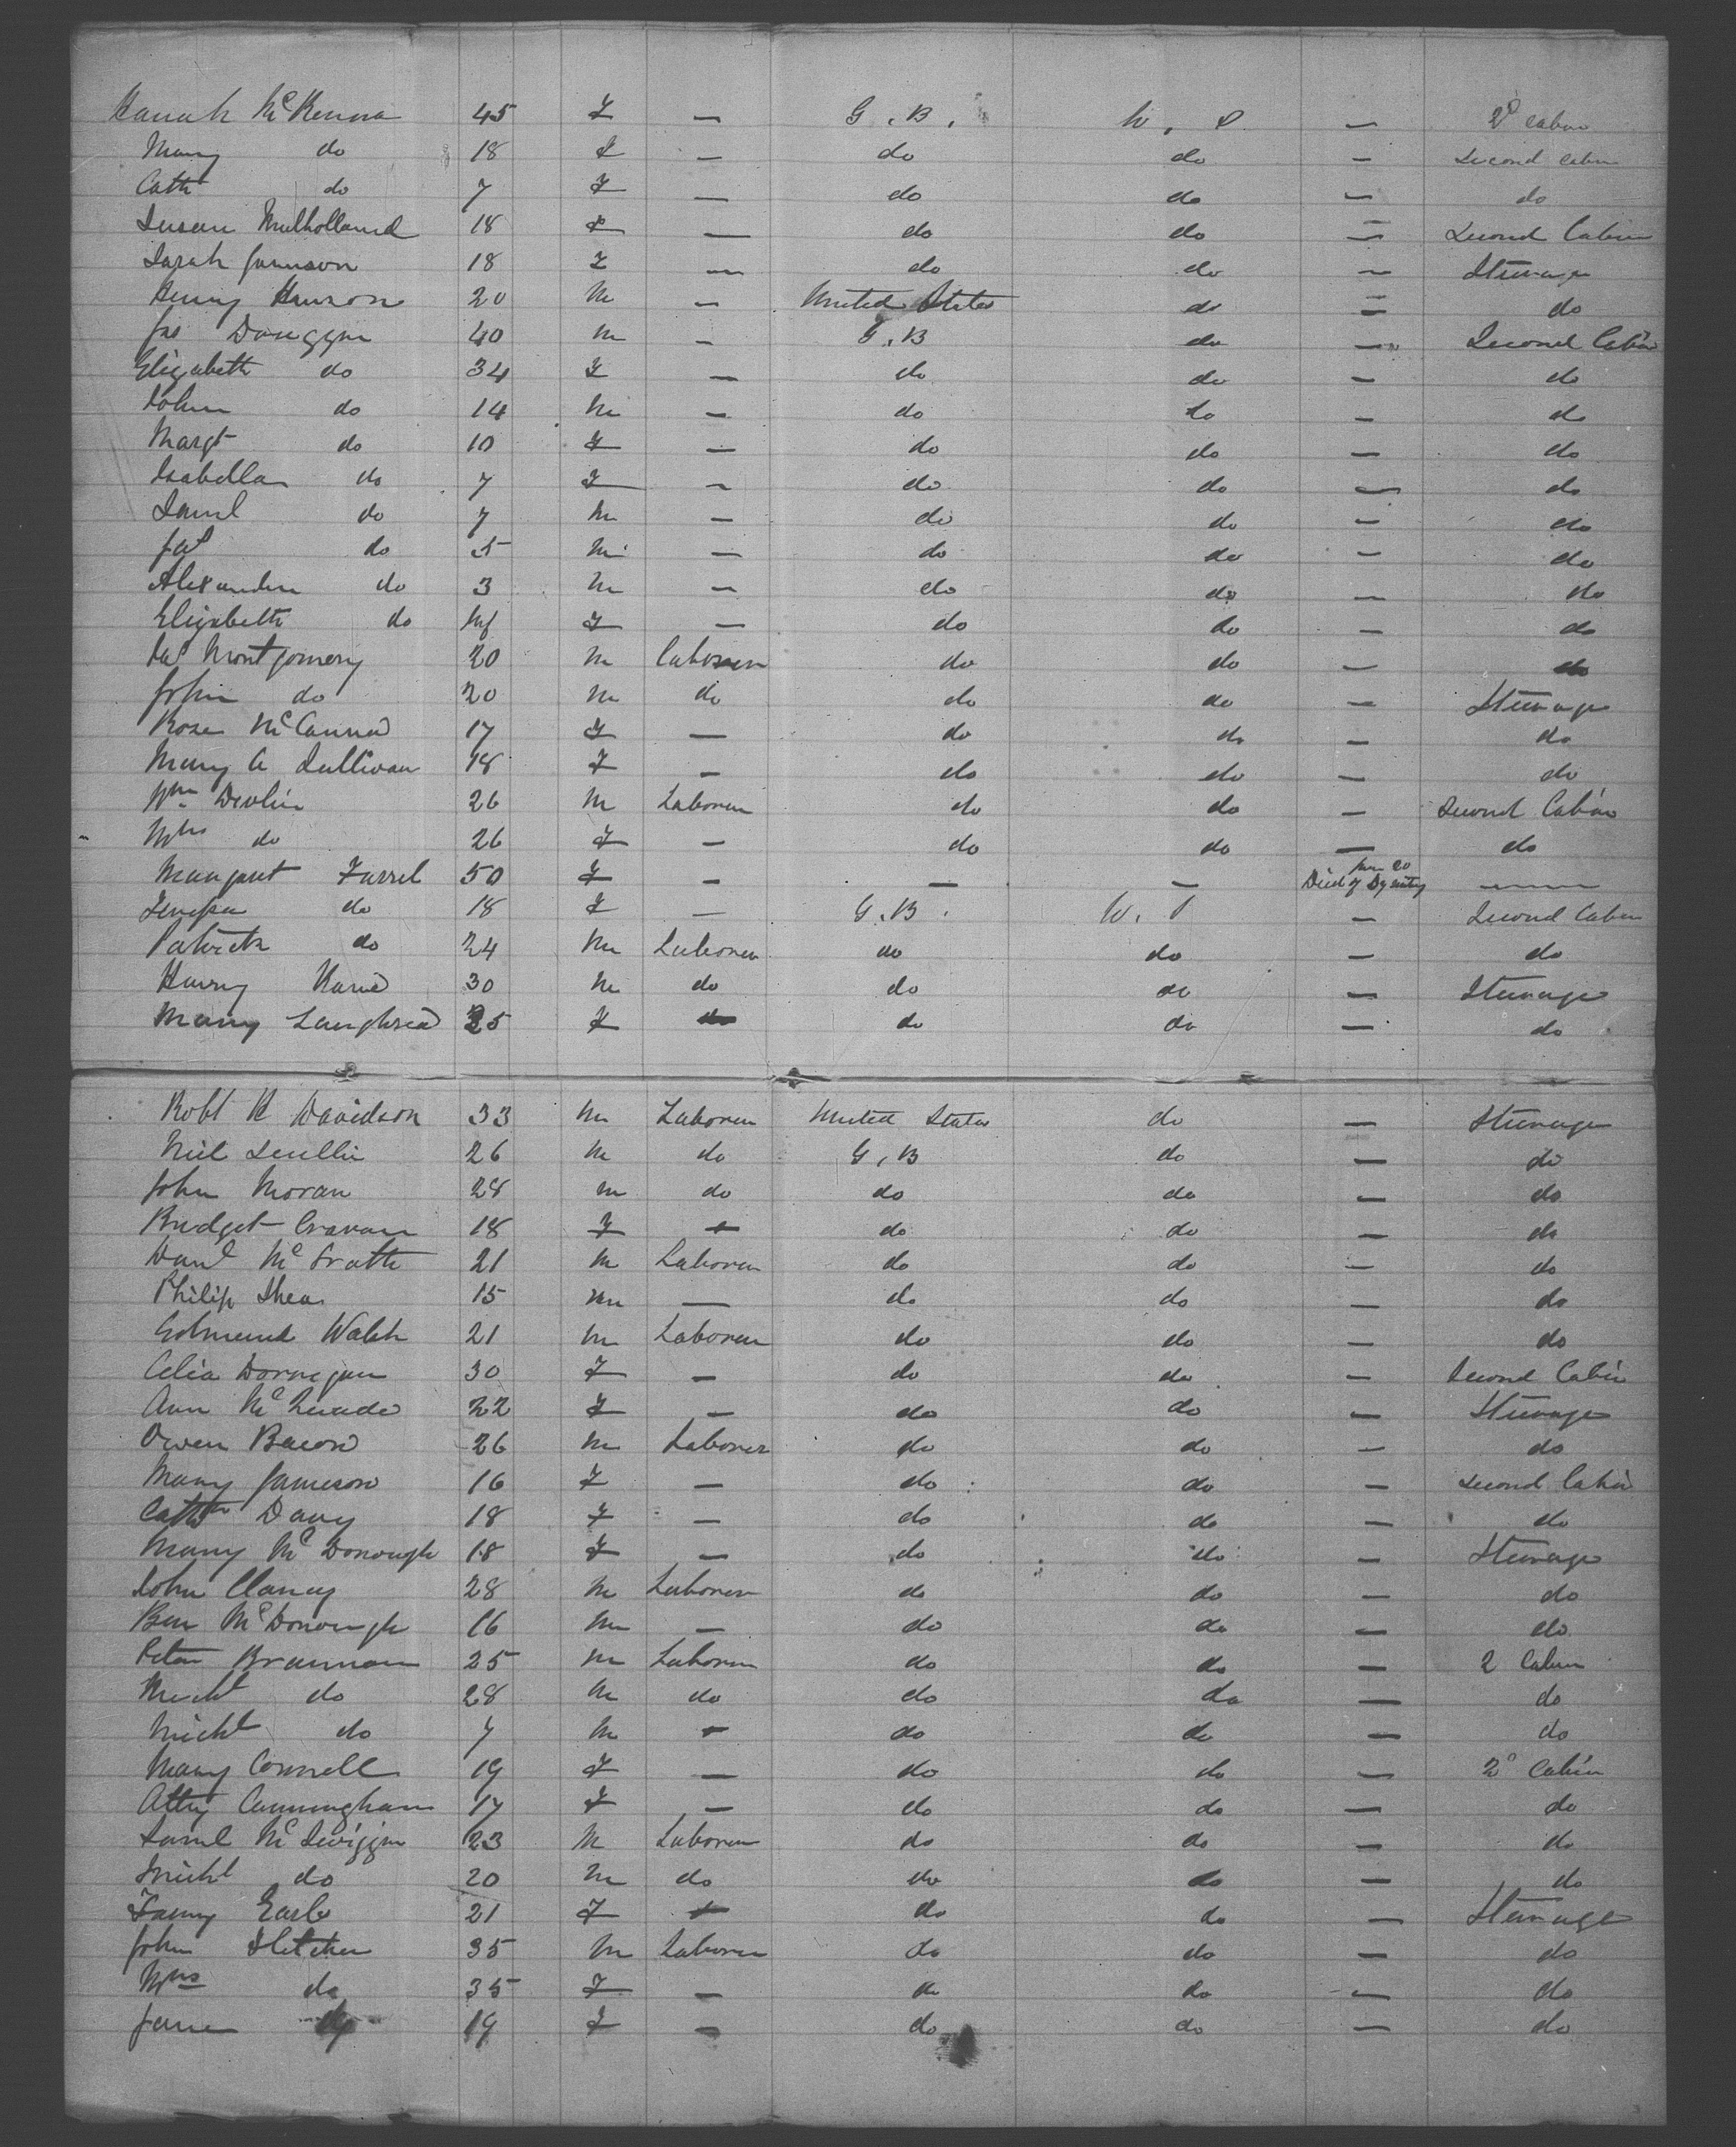 Hanah McKenna 45 F — G.B. W. P. — 2d Cabin
Mary do 18 F — do do — Second Cabin
Cath do 7 F — do do — do
Susan Mulholland 18 F — do do — Second Cabin
Sarah Jamison 18 F — do do — Steerage
Henry 20 M — United States do — do
Jas 40 M — G.B do — Second Cabin
Elizabeth do 34 F — do do — do
John do 14 M — do do — do
Margt do 10 F — do do — do
Isabella do 7 F — do do — do
Saml do 7 M — do do — do
Jas do 5 M — do do — do
Alexander do 3 M — do do — do
Elizabeth do Inf F — do do — do
Jas Montgomery 20 M Laborer do do — do
John do 20 M do do do — Steerage
Rose McCanna 17 F — do do — do
Mary A Sullivan 18 F — do do — do
Wm Devlin 26 M Laborer do do — Second Cabin
Mrs do 26 F — do do — do
Margaret Farrel 50 F — — — Died of Dysentry —
do 18 F — G.B. W. P — Second Cabin
Patrick do 24 M Laborer do do — do
Harry 30 M do do do — Steerage
Mary 25 F do do do — do
Robt H Davidson 33 M Laborer United States do — Steerage
Niel Scullin 26 M do G.B do — do
John Moran 28 M do do do — do
Bridget Cravan 18 F — do do — do
Danl McGrath 21 M Laborer do do — do
Philip Shea 15 M — do do — do
Edmund Walsh 21 M Laborer do do — do
Celia Dornegan 30 F — do do — Second Cabin
Ann McQuade 22 F — do do — Steerage
Owen Bacon 26 M Laborer do do — do
Mary Jameson 16 F — do do — Second Cabin
Cath Davy 18 F — do do — do
Mary McDonough 18 F — do do — Steerage
John Clancy 28 M Laborer do do — do
Ben McDonough 16 M — do do — do
Peter Brannan 25 M Laborer do do — 2 Cabin
Michl do 28 M do do do — do
Michl do 7 M — do do — do
Mary Connell 19 F — do do — 2d Cabin
Cunningham 17 F — do do — do
Saml McSwiggin 23 M Laborer do do — do
Michl do 20 M do do do — do
Fanny Earle 21 F — do do — Steerage
John Fletcher 35 M Laborer do do — do
Mrs do 35 F — do do — do
Jane do 19 F — do do — do